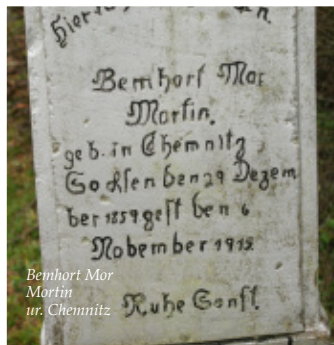 Bernhort Mor
Mortin.
geb. in Chemnitz
Sochsen ben 29 Dezem
ber 1859 gest ben 6
Nobember 1912
Ruhe Sonft.
Bemhort Mor
Mortin
ur. Chemnitz